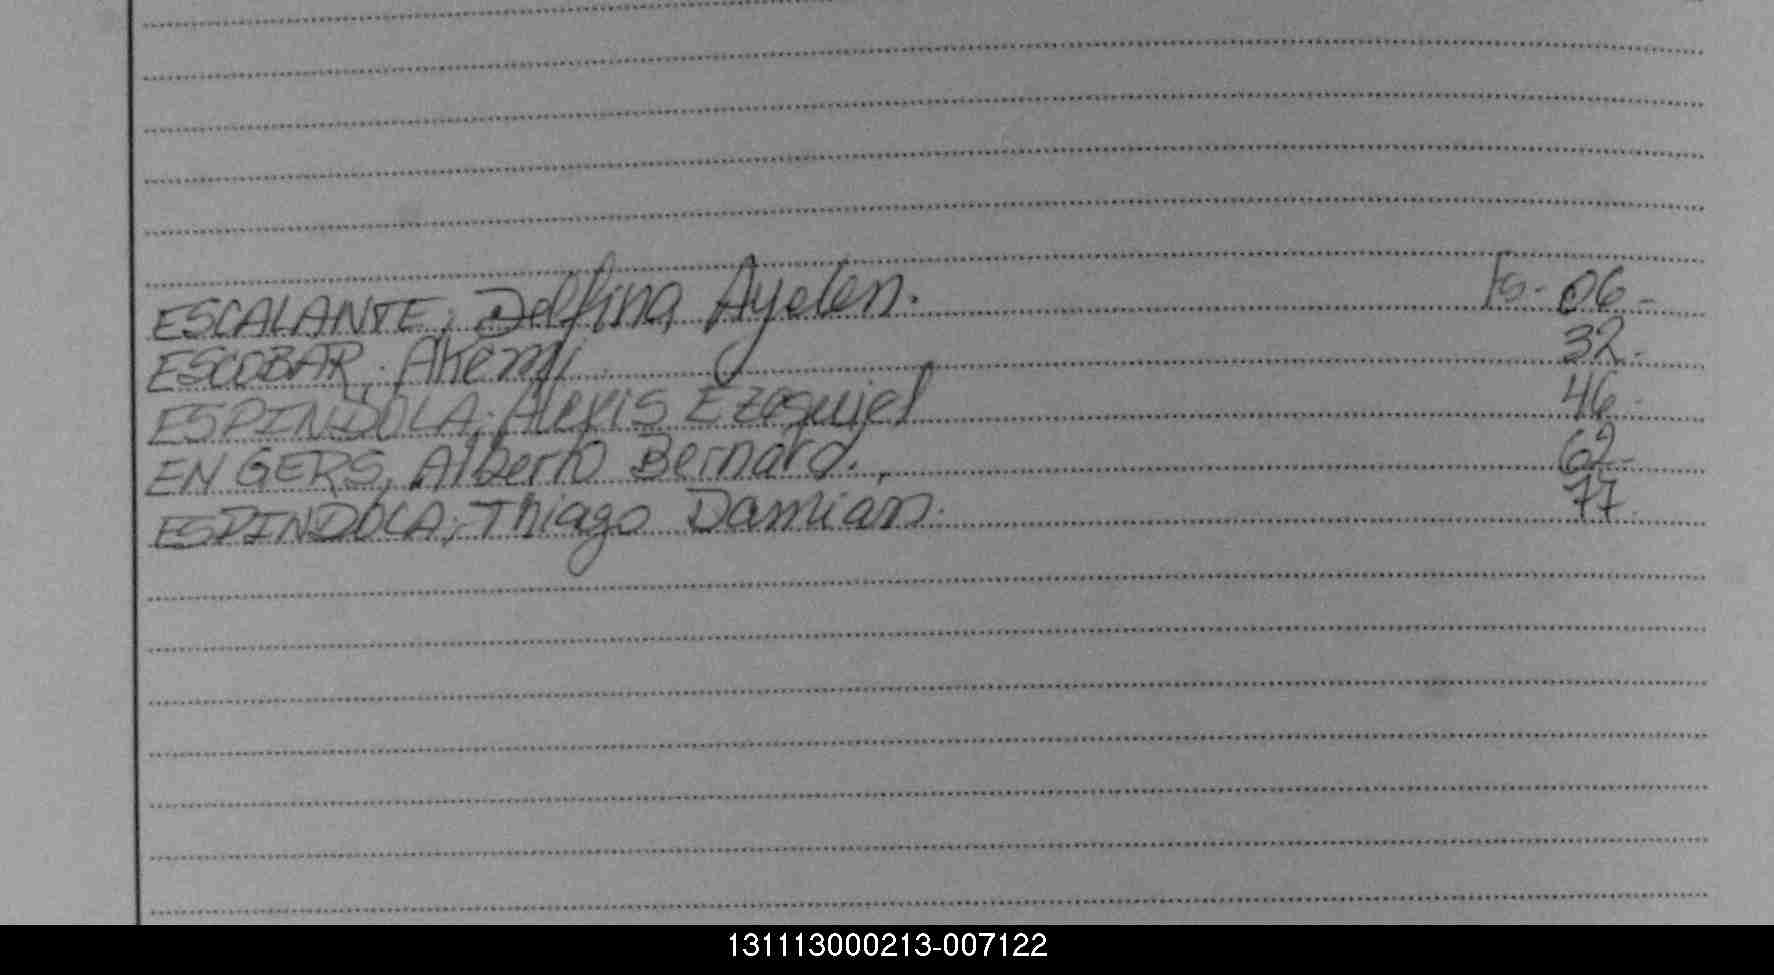 ESCALANTE, Delfina Ayelen. Fs- 06-
ESCOBAR, Akemi 32-
ESPINDOLA, Alexis Ezequiel 46-
ENGERS, Alberto Bernard. 62-
ESPINDOLA, Thiago Damian. 77.
131113000213-007122